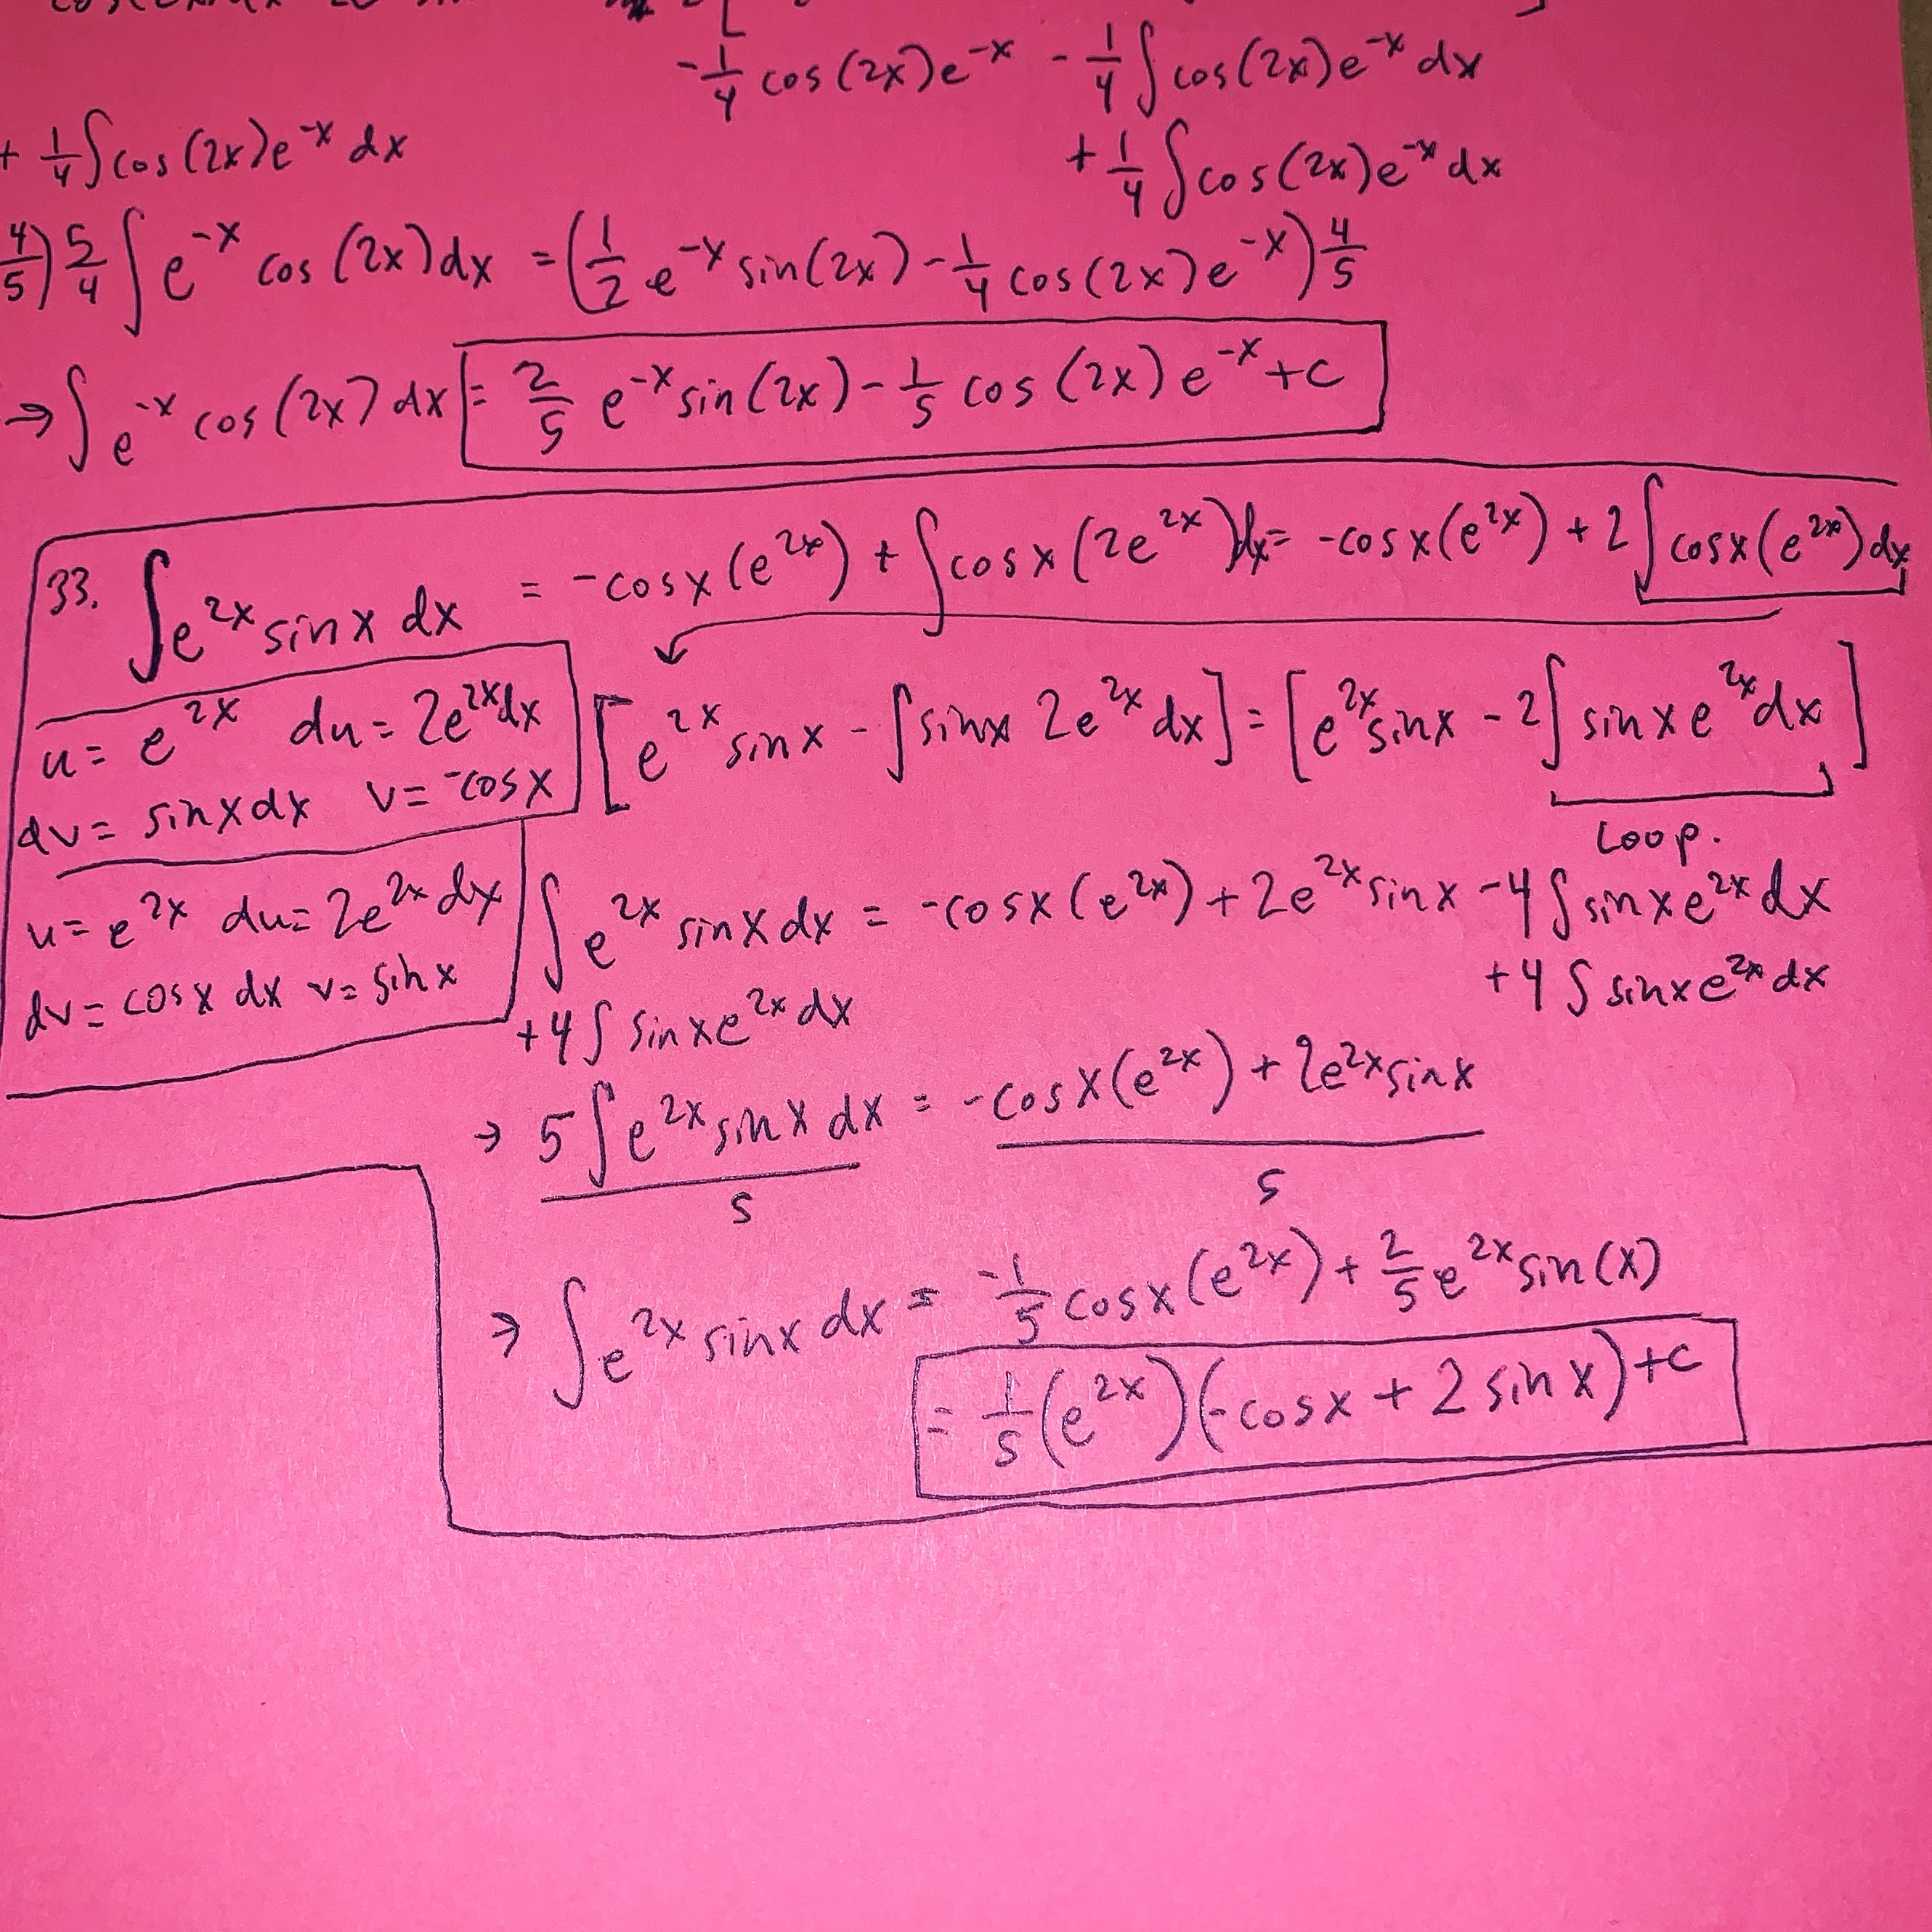 -1/4 cos(2x)e^-x - 1/4 ∫cos(2x)e^-x dx
+ 1/4 ∫cos(2x)e^-x dx + 1/4 ∫cos(2x)e^-x dx
4/5) 5/4 ∫e^-x cos(2x)dx = (1/2 e^-x sin(2x) - 1/4 cos(2x)e^-x) 4/5
→ ∫e^-x cos(2x)dx = 2/5 e^-x sin(2x) - 1/5 cos(2x)e^-x + c
33. ∫e^2x sinx dx = -cosx(e^2x) + ∫cosx(2e^2x)dx = -cosx(e^2x) + 2∫cosx(e^2x)dx
u = e^2x du = 2e^2x dx
dv = sinxdx v = -cosx
[e^2x sinx - ∫sinx 2e^2x dx] = [e^2x sinx - 2∫sinxe^2x dx]
Loop.
u = e^2x du = 2e^2x dx
dv = cosx dx v = sinx
∫e^2x sinxdx = -cosx(e^2x) + 2e^2x sinx - 4∫sinxe^2x dx
+4∫sinxe^2x dx +4∫sinxe^2x dx
→ 5∫e^2x sinxdx = -cosx(e^2x) + 2e^2x sinx
5 5
→ ∫e^2x sinxdx = -1/5 cosx(e^2x) + 2/5 e^2x sin(x)
= 1/5 (e^2x)(-cosx + 2sinx) + c